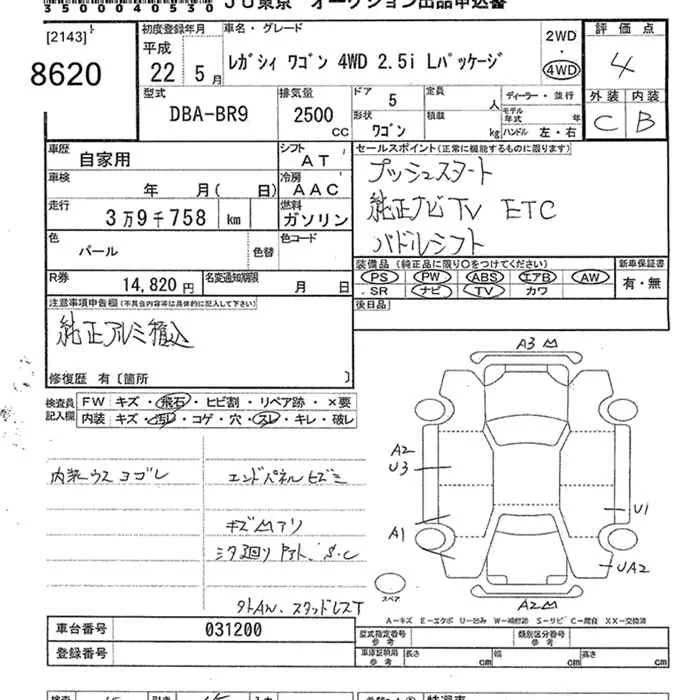 35000040530 JU東京 オークション出品申込書
[2143]
8620
初度登録年月
平成
22 年 5 月
車名・グレード
レガシィ ワゴン 4WD 2.5i Lパッケージ
2WD
・
4WD
評価点
4
外装 内装
C B
型式
DBA-BR9
排気量
2500
CC
ドア 5
形状
ワゴン
定員 人
積載 kg
ディーラー・並行
モデル年式 年
ハンドル 左・右
車歴
自家用
シフト
AT
車検
年 月( 日)
冷房
AAC
走行
3万9千758 km
燃料
ガソリン
色
パール
色替
色コード
R券
14,820 円
名変通知期限
月 日
セールスポイント(正常に機能するものに限ります)
プッシュスタート
純正ナビTV ETC
パドルシフト
装備品(純正品に限り○をつけてください)
PS PW ABS エアB AW
SR ナビ TV カワ
新車保証書
有・無
後日品
注意事項申告欄(不具合内容等は具体的に記入して下さい)
純正アルミ積込
修復歴 有〔箇所 〕
検査員
記入欄
FW キズ・飛石・ヒビ割・リペア跡・×要
内装 キズ・汚レ・コゲ・穴・スレ・キレ・破レ
内装ウスヨゴレ
エンドパネルヒズミ
キズ凹アリ
ミタ廻り
S・C
外AW、スタッドレスT
A3
A2
U3
A1
U1
UA2
A2
スペア
A-キズ E-エクボ U-凹み W-補修跡 S-サビ C-腐食 XX-交換済
車台番号
031200
登録番号
型式指定番号
参考
類別区分番号
参考
車庫証明用
参考
長さ cm
幅 cm
高さ cm